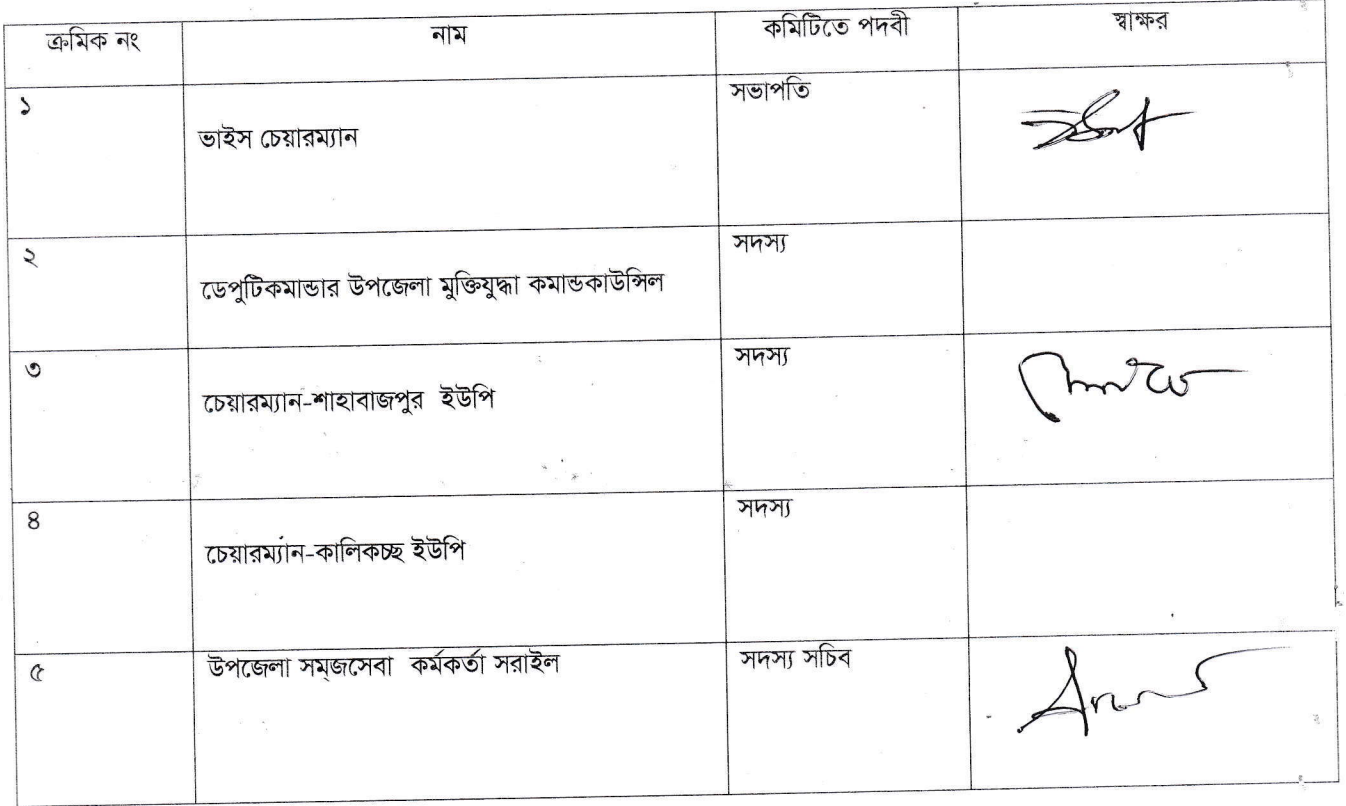 ক্রমিক নং নাম কমিটিতে পদবী স্বাক্ষর
১ ভাইস চেয়ারম্যান সভাপতি
২ ডেপুটিকমান্ডার উপজেলা মুক্তিযুদ্ধা কমান্ডকাউন্সিল সদস্য
৩ চেয়ারম্যান-শাহাবাজপুর ইউপি সদস্য
৪ চেয়ারম্যান-কালিকচ্ছ ইউপি সদস্য
৫ উপজেলা সমৃজসেবা কর্মকর্তা সরাইল সদস্য সচিব